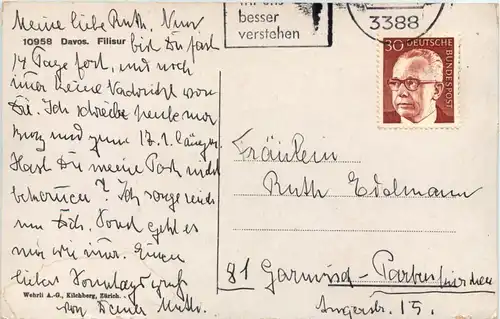 Meine liebe Ruth. Nun
10958 Davos. Filisur
bist Du fast
14 Tage fort, und noch
immer keine Nachricht von
Dir. Ich schreibe heute nur
kurz und zum 17.1. länger.
Hast Du meine Post nicht
bekommen? Ich sorge mich
um Dich. Sonst geht es
mir wie immer. Einen
lieben Sonntagsgruß
Wehrli A.-G., Kilchberg, Zürich.
von Deiner Mutti.
besser
verstehen
3388
30 DEUTSCHE
BUNDESPOST
Fräulein
Ruth Edelmann
81 Garmisch-Partenkirchen
Angerstr. 15.